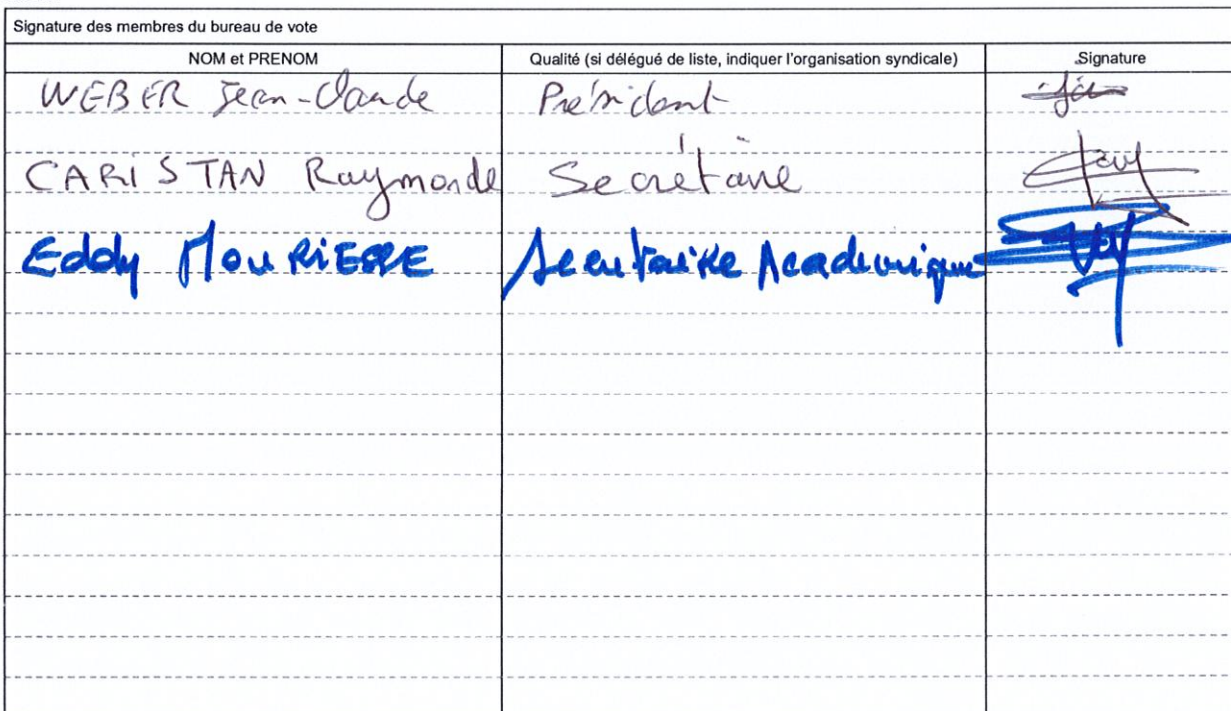 Signature des membres du bureau de vote
NOM et PRENOM Qualité (si délégué de liste, indiquer l'organisation syndicale) Signature
WEBER Jean-Claude Président
CARISTAN Raymonde Secrétaire
Eddy Secrétaire Académique